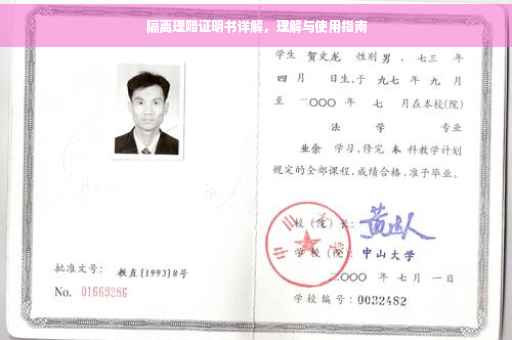 隔离理赔证明书详解，理解与使用指南
学生 贺文龙 性别男，七三 年
四 月 日生，于 九七 年 九 月
至 二〇〇〇 年 七 月在本校(院)
法 学 专业
业余 学习，修完 本 科教学计划
规定的全部课程，成绩合格，准予毕业。
校（院）长：
学校（院）：中山大学
二〇〇〇 年 七 月 一 日
批准文号： 教直[1993]8号
No. 01669286
学校编号：0032482